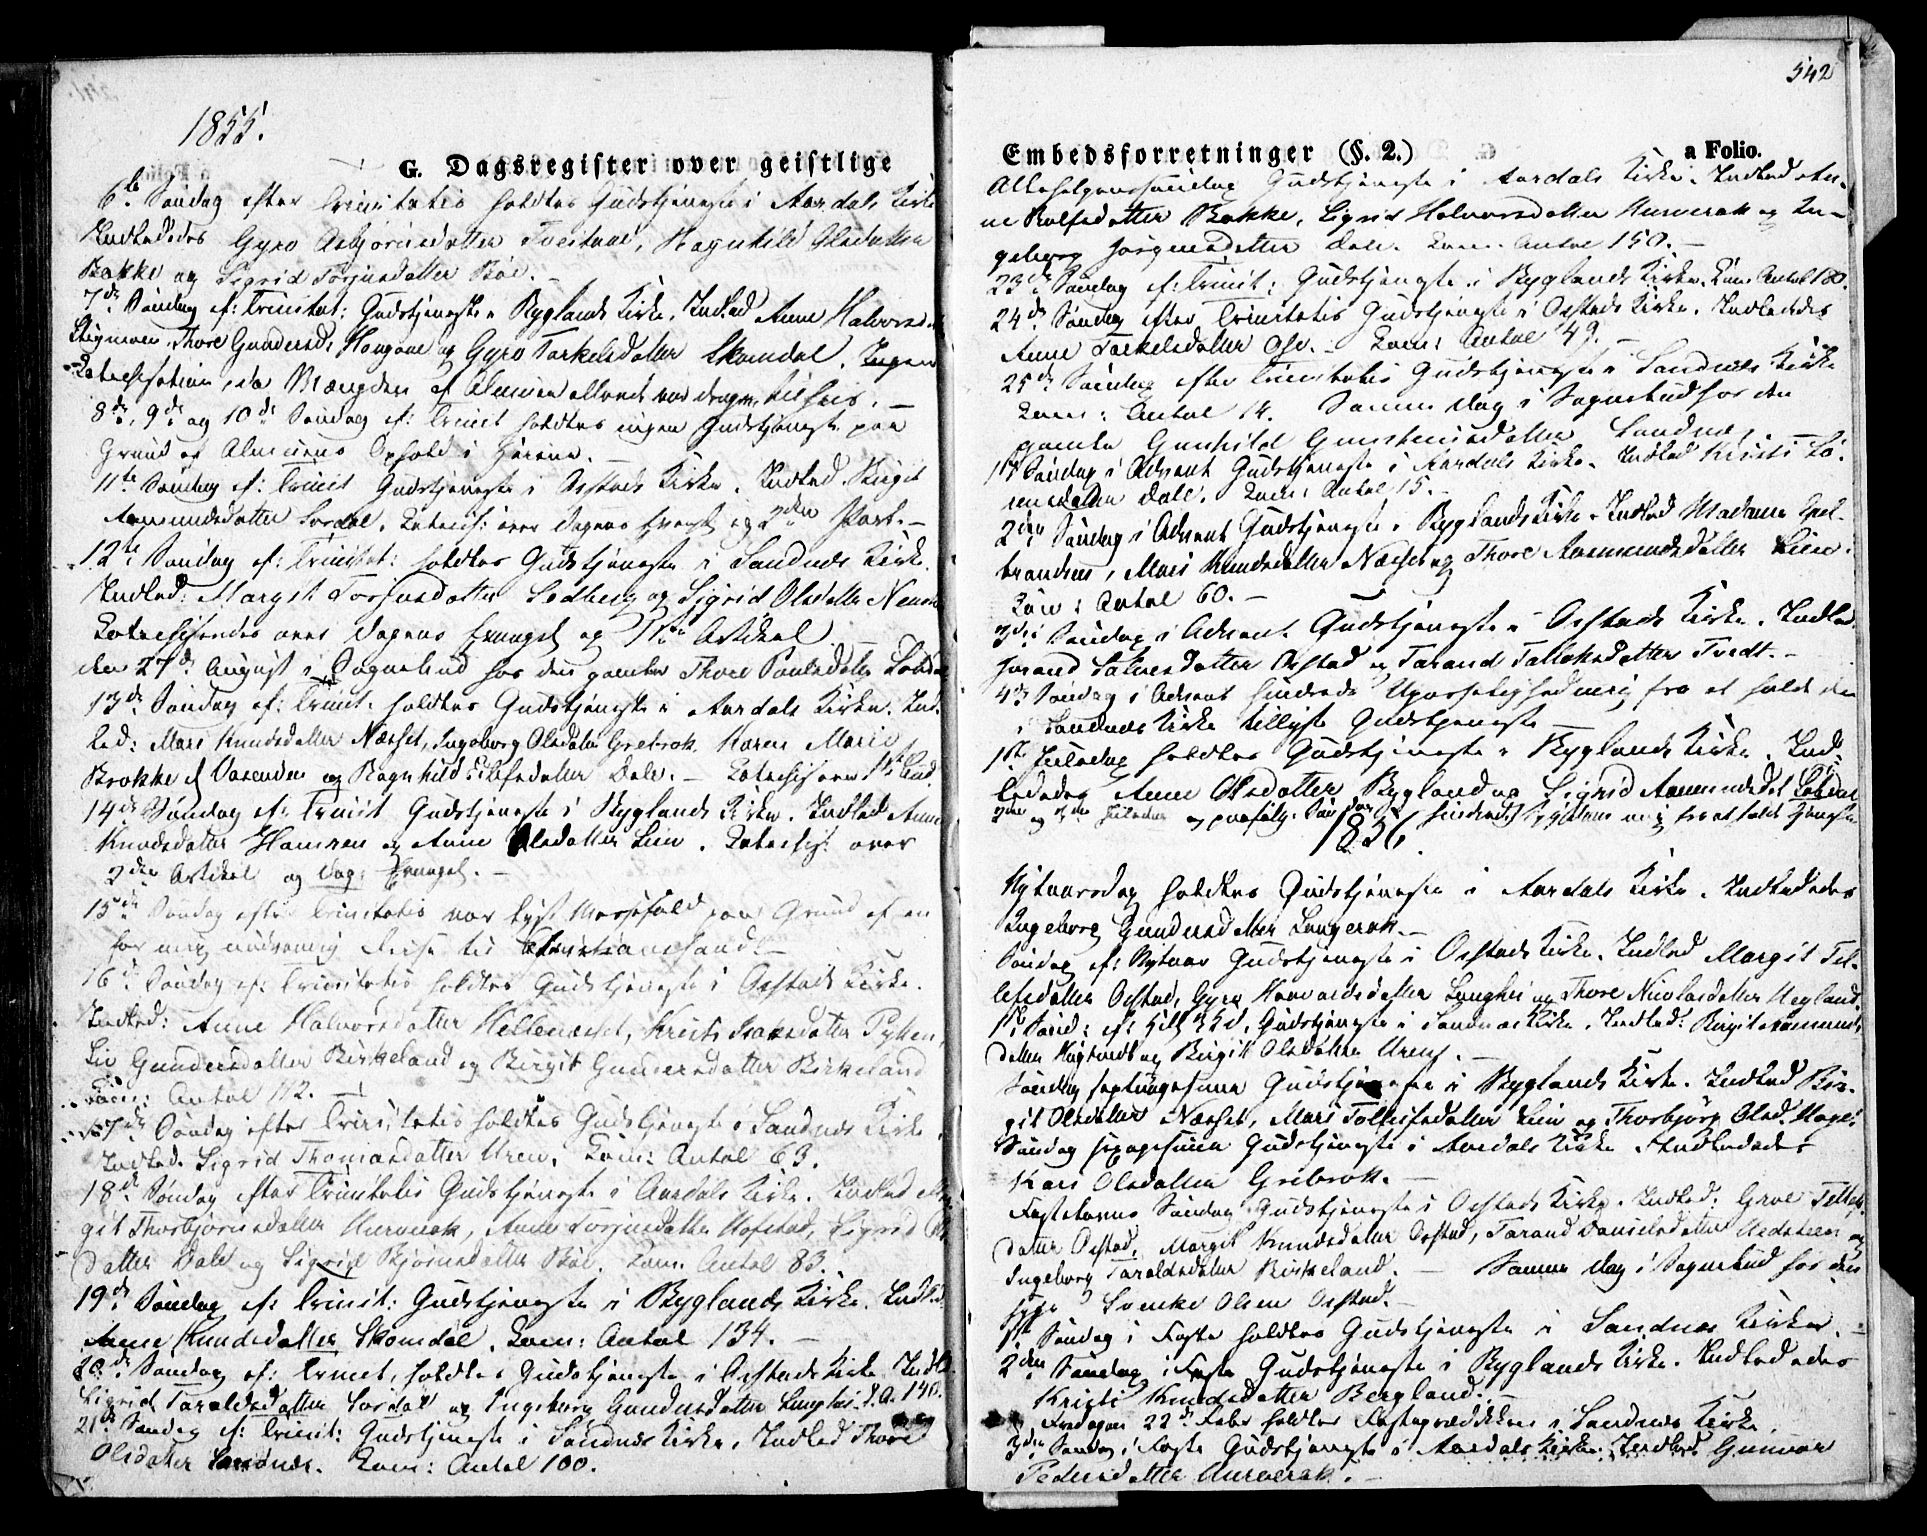 1855.
G. Dagsregister over geistlige
6te Søndag efter Trinitatis holdtes Gudstjeneste i Aardals Kirke
Indledes Gyro Asbjørnsdatter Tveitane, Ragnhild Olsdatter
Bakke og Sigrid Torjusdatter Bøe.
7de Søndag ef: Trinitat: Gudstjeneste i Byglands Kirke. Indled Anne Halvorsd
Thore Gundersd: Haugane og Gyro Torkelsdatter Skomdal. Ingen
Katechisation, da Mængden af Almuen allerede var dragen til
8de, 9de og 10de Søndag ef: Trinit holdtes ingen Gudstjeneste paa
Grund af Almuens Ophold i Heiene. —
11te Søndag ef: Trinit Gudstjeneste i Ostads Kirke. Indled Birgit
Aamundsdatter Sordal. Katech: over Dagens Evangl og 2den Part. —
12te Søndag ef: Trinitat: holdtes Gudstjeneste i Sandnes Kirke.
Indled: Margit Torjusdatter Sedberg og Sigrid Olsdatter
Katechiseredes over Dagens Evangel og 1ste Artikel
den 27de August i Sognebud hos den gamle Thore Paulsdatter
13de Søndag ef: Trinit: holdtes Gudstjeneste i Aardals Kirke. Ind-
led: Mari Knudsdatter Næset, Ingeborg Olsdatter Grebrok Karen Marie
Brokke af Vasenden og Ragnhild Eilefsdatter Dale. — Katechis over 1ste
14de Søndag ef: Trinit Gudstjeneste i Byglands Kirke. Indled Anne
Knudsdatter Hamren og Anne Olsdatter Lien. Katechis: over
2den Artikel og Dag: Evangel. —
15de Søndag efter Trinitatis var lyst Messefald paa Grund af en
for mig nødvendig Reise til Christianssand. —
16de Søndag ef: Trinitatis holdtes Gudstjeneste i Ostads Kirke.
Indled: Anne Halvorsdatter Hellenæset, Kristi Isaksdatter
Liv Gundersdatter Birkeland og Birgit Gundersdatter Birkeland
Kom: Antal 112. —
17de Søndag efter Trinitatis holdtes Gudstjeneste i Sandnes Kirke.
Indled. Sigrid Thomasdatter Uren. Kom: Antal 63.
18de Søndag efter Trinitatis Gudstjeneste i Aardals Kirke. Indled
git Thorbjørnsdatter Hurverak, Anne Torjusdatter Hofstad, Sigrid
datter Dale og Sigrid Bjørnsdatter Bøe. Kom. Antal 83.
19de Søndag ef: Trinit: Gudstjeneste i Byglands Kirke. Indled
Anne Knudsdatter Skomdal. Kom: Antal 134. —
20de Søndag ef: Trinit, holdtes Gudstjeneste i Ostads Kirke Indled
Sigrid Taraldsdatter Sordal og Ingeborg Gundersdatter K. A. 140.
21de Søndag ef: Trinit: Gudstjeneste i Sandnes Kirke. Indled Thore
Olsdatter Sandnes. Kom: Antal 100.
542
Embedsforretninger (§. 2.) a Folio.
Allehelgenssøndag Gudstjeneste i Aardals Kirke. Indled An-
ne Rolfsdatter Bakke, Sigrid Halvorsdatter Hurverak og In-
geborg Jørgensdatter Dale. Kom. Antal 150. —
23de Søndag ef: Trinit: Gudstjeneste i Byglands Kirke. Kom Antal
24de Søndag efter Trinitatis Gudstjeneste i Ostads Kirke. Indledes
Anne Torkelsdatter Ose. — Kom: Antal 49. —
25de Søndag efter Trinitatis Gudstjeneste i Sandnes Kirke
Kom: Antal 14. Samme Dag i Sognebud hos den
gamle Gunhild Gunsteinsdatter Sandnes.
1ste Søndag i Advent Gudstjeneste i Aardals Kirke. Indled Kristi
datter Dale. Kom: Antal 15. —
2den Søndag i Advent Gudstjeneste i Byglands Kirke. Indled Madame Gul-
brandsen, Mari Knudsdatter Næset og Thore Aamundsdatter Lien.
Kom: Antal 60. —
3die Søndag i Advent Gudstjeneste i Ostads Kirke. Indled
Jorand Salvesdatter Ostad og Tarand Tallaksdatter Tvedt. —
4de Søndag i Advent hindrede Upasselighed mig fra at holde den
i Sandnes Kirke tillyste Gudstjeneste
1ste Juledag holdtes Gudstjeneste i Byglands Kirke. Ind-
ledes Anne Olsdatter Bygland og Sigrid Aamundsdat
2den og 3die Juledag og paafølg. Søndag hindrede Sygdom mig fra at holde Tjeneste
1856.
Nytaarsdag holdtes Gudstjeneste i Aardals Kirke. Indledes
Ingeborg Gundersdatter Langerak. —
Søndag ef: Nytaar Gudstjeneste i Ostads Kirke. Indled Margit Tel-
lefsdatter Ostad, Gyro Haavardsdatter Langhei og Thore Nicolasdatter Uegland.
1ste Sønd: ef: Gudstjeneste i Sandnes Kirke. Indled: Birgit Aamunds
datter og Birgit Olsdatter Uren. —
Søndag septuagesima Gudstjeneste i Byglands Kirke. Indled Bir-
git Olsdatter Næset, Mari Tollefsdatter Lien og Thorbjørg Olsd.
Søndag sexagesima Gudstjeneste i Aardals Kirke. Indledes
Kari Olsdatter Grebrok. —
Fastelavns Søndag Gudstjeneste i Ostads Kirke. Indled: Groe
datter Ostad, Margit Knudsdatter Ostad, Tarand Danielsdatter og
Ingeborg Taraldsdatter Birkeland. — Samme Dag i Sognebud hos den
syge Svenke Olsen Ostad. —
1ste Søndag i Faste holdtes Gudstjeneste i Sandnes Kirke. —
2den Søndag i Faste Gudstjeneste i Byglands Kirke. Indledes
Kristi Knudsdatter Bergland. —
Fredagen 22de Febr holdtes Fasteprædiken i Sandnes Kirke
3die Søndag i Faste Gudstjeneste i Aardals Kirke. Indled Gunvor
Pedersdatter Hurverak. —